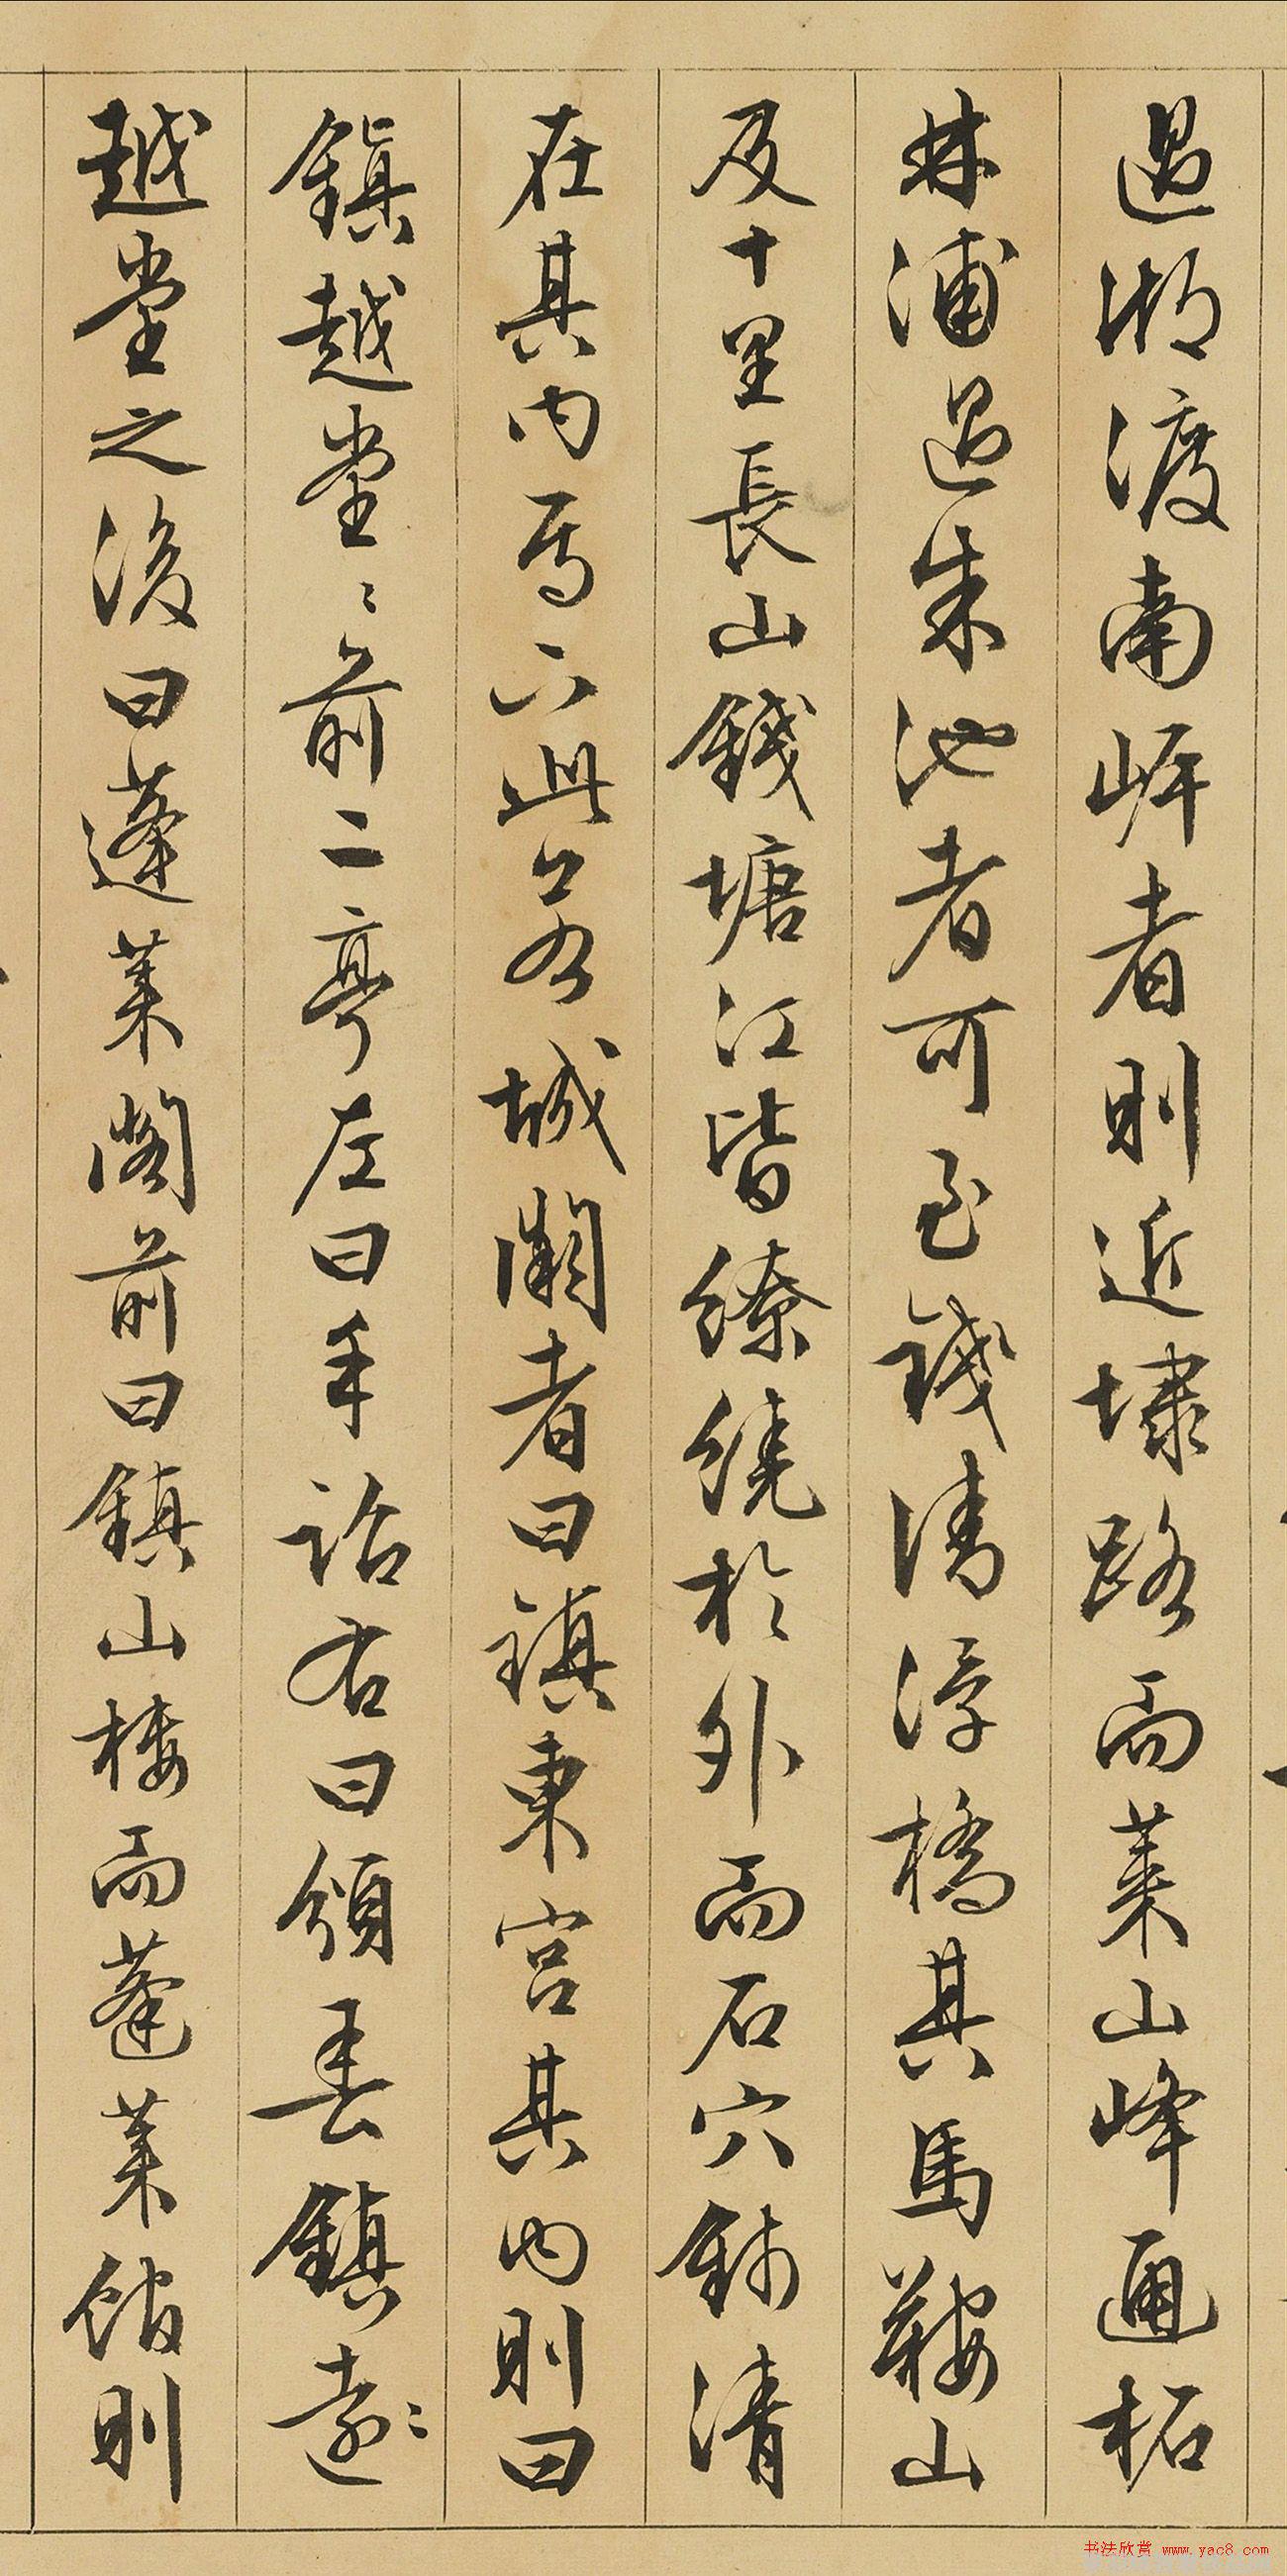 過湖渡南岸者則近埭路而萊山峰通柘
林浦過朱池者可至錢清浮橋其馬鞍山
及十里長山錢塘江皆繚繞於外而石穴錢清
在其內焉六此又名城闕者曰鎮東宮其內則曰
鎮越堂〻前二亭左曰手詔右曰頒春鎮遠〻
越堂之後曰蓬萊閣前曰鎮山樓而蓬萊館則
书法欣赏 www.yac8.com